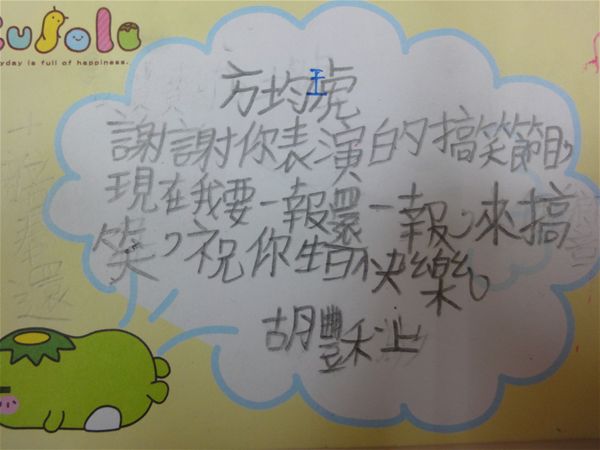 Kusola
yday is full of happiness.
方均琥
謝謝你表演的搞笑節目,
現在我要一報還一報,來搞
笑,祝你生日快樂。
胡豐禾上